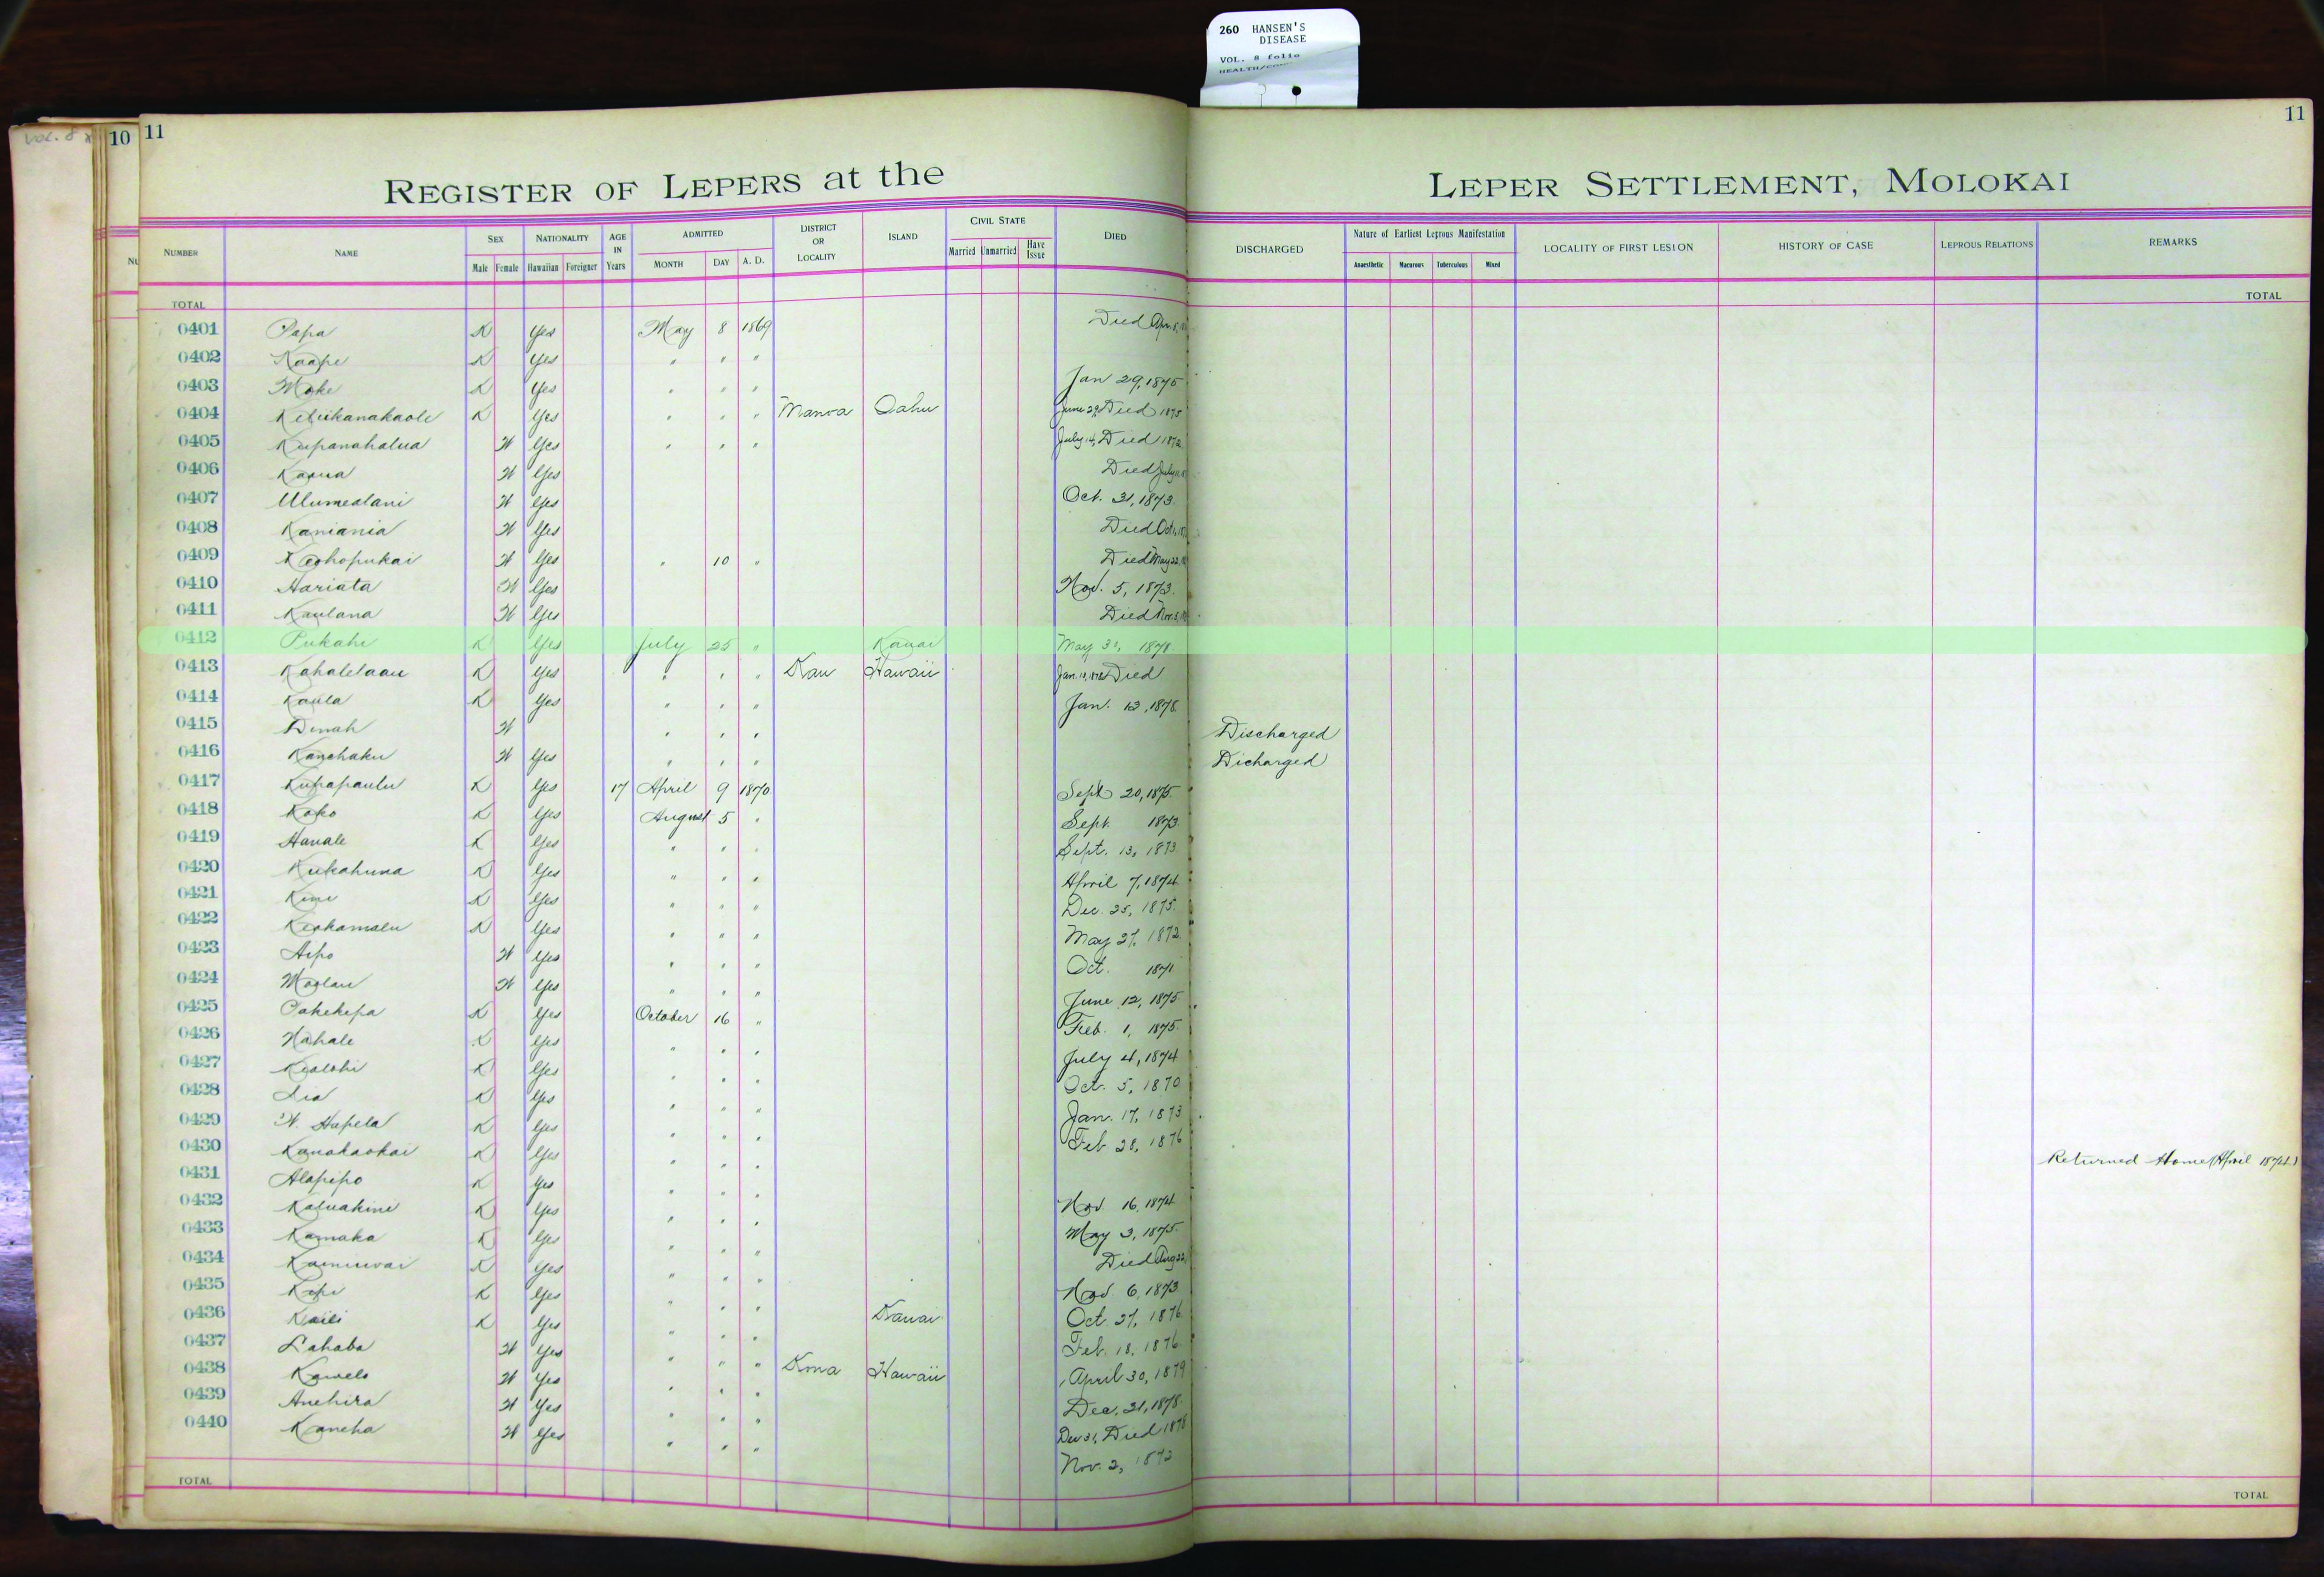 260 HANSEN'S
DISEASE
VOL. 8 folio
VOL. 8
10 11
11
REGISTER OF LEPERS at the LEPER SETTLEMENT, MOLOKAI
NUMBER NAME SEX NATIONALITY AGE IN Years ADMITTED DISTRICT OR LOCALITY ISLAND CIVIL STATE DIED DISCHARGED Nature of Earliest Leprous Manifestation LOCALITY OF FIRST LESION HISTORY OF CASE LEPROUS RELATIONS REMARKS
Male Female Hawaiian Foreigner MONTH DAY A. D. Married Unmarried Have Issue Anaesthetic Macurous Tuberculous Mixed
TOTAL TOTAL
0401 Papa K Yes May 8 1869 Died Apr. 8,
0402 Kaape K Yes " " "
0403 Moke K Yes " " " Jan 29, 1875
0404 Keliikanakaole K Yes " " " Manoa Oahu June 29, Died 1875
0405 Kupanahalua W Yes " " " July 14, Died 1872
0406 Kaaua W Yes Died July
0407 Ulumealani W Yes Oct. 31, 1873.
0408 Kaniania W Yes Died Oct.
0409 Keohopukai W Yes " 10 " Died May 22,
0410 Hariata W Yes Nov. 5, 1873.
0411 Kaulana W Yes Died Nov. 3,
0412 Pukahi K Yes July 25 " Kauai May 31, 1871
0413 Kahalelaau K Yes " " " Kau Hawaii Jan. Died
0414 Kaula K Yes " " " Jan. 12, 1878.
0415 Dinah W " " " Discharged
0416 Kanehaku W Yes " " " Dicharged
0417 Kupapaulu K Yes 17 April 9 1870 Sept 20, 1875.
0418 Koko K Yes August 5 " Sept. 1873
0419 Hanale K Yes " " " Sept. 13, 1873
0420 Kukahuna K Yes " " " April 7, 1874
0421 Kini K Yes " " " Dec. 25, 1875.
0422 Keohamalu K Yes " " " May 27, 1872
0423 Aipo W Yes " " " Oct. 1871
0424 Moolau W Yes " " " June 12, 1875
0425 Pakekepa K Yes October 16 " Feb. 1, 1875.
0426 Nahale K Yes " " " July 4, 1874
0427 Kealohi K Yes " " " Oct. 5, 1870
0428 Lia K Yes " " " Jan. 17, 1873
0429 W. Hapela K Yes " " " Feb 28, 1876
0430 Kanakaokai K Yes " " " Returned Home (April 1874.)
0431 Alapipo K Yes " " " Nov 16, 1874
0432 Kaluakini K Yes " " " May 3, 1875.
0433 Kamaka K Yes " " " Died Aug 22,
0434 Kainuwai K Yes " " " Nov. 6, 1873
0435 Kepi K Yes " " " Oct. 27, 1876
0436 Kaili K Yes " " " Kauai Feb. 18, 1876
0437 Lahaba W Yes " " " April 30, 1879
0438 Kawelo W Yes " " " Kona Hawaii Dec. 31, 1878.
0439 Anehira W Yes " " " Dec 31, Died 1878
0440 Kaneha W Yes " " " Nov. 2, 1872
TOTAL TOTAL